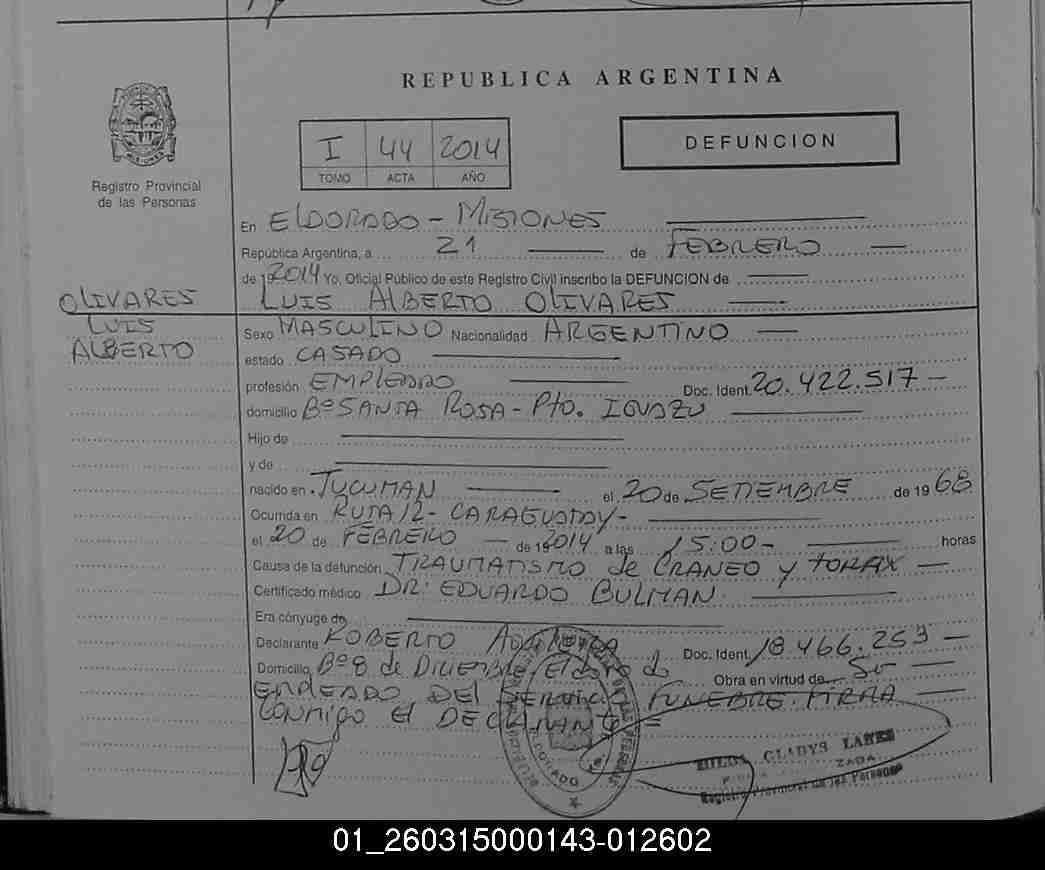 REPUBLICA ARGENTINA
I 44 2014
TOMO ACTA AÑO
DEFUNCION
Registro Provincial
de las Personas
MISIONES
En ELDORADO - MISIONES
República Argentina, a 21 de FEBRERO
de 19 2014 Yo, Oficial Público de este Registro Civil inscribo la DEFUNCION de
OLIVARES
LUIS
ALBERTO
LUIS ALBERTO OLIVARES
Sexo MASCULINO Nacionalidad ARGENTINO
estado CASADO
profesión EMPLEADO Doc. Ident. 20.422.517
domicilio Bº SANTA ROSA - Pto. IGUAZU
Hijo de
y de
nacido en TUCUMAN el 20 de SETIEMBRE de 19 68
Ocurrida en RUTA 12 - CARAGUATAY -
el 20 de FEBRERO de 19 2014 a las 15:00 - horas
Causa de la defunción TRAUMATISMO de CRANEO y TORAX
Certificado médico DR. EDUARDO BULMAN
Era cónyuge de
Declarante ROBERTO Doc. Ident. 18.466.253
Domicilio Bº 8 de DICIEMBRE Eldorado Obra en virtud de Su
EMPLEADO DEL SERVICIO FUNEBRE. FIRMA
CONMIGO El DECLARANTE =
GLADYS
Registro Provincial de las Personas
01_260315000143-012602